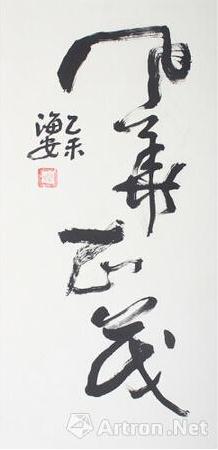 风华正茂
乙未
海安
Artron.Net